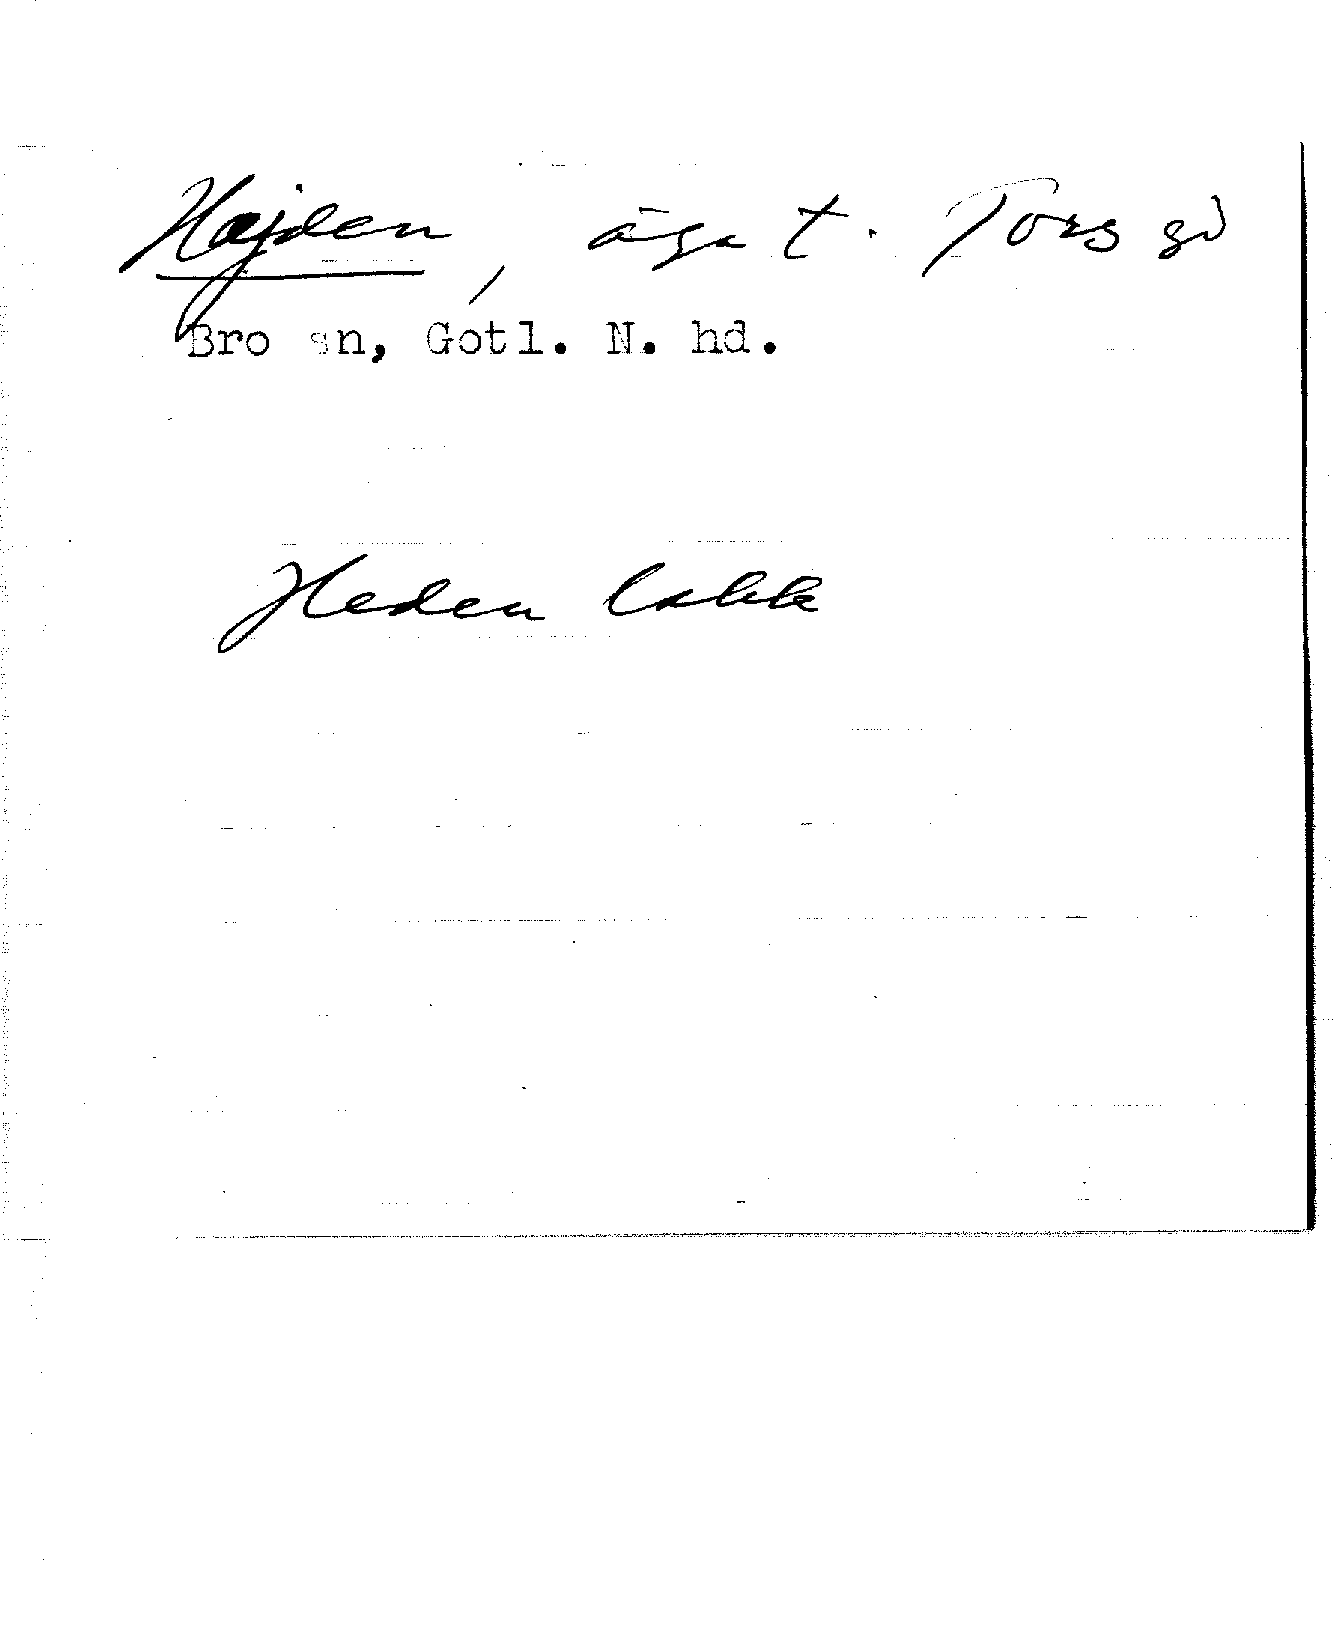 Hajden, äga t. Tors gd
Bro sn, Gotl. N. hd.
Heden